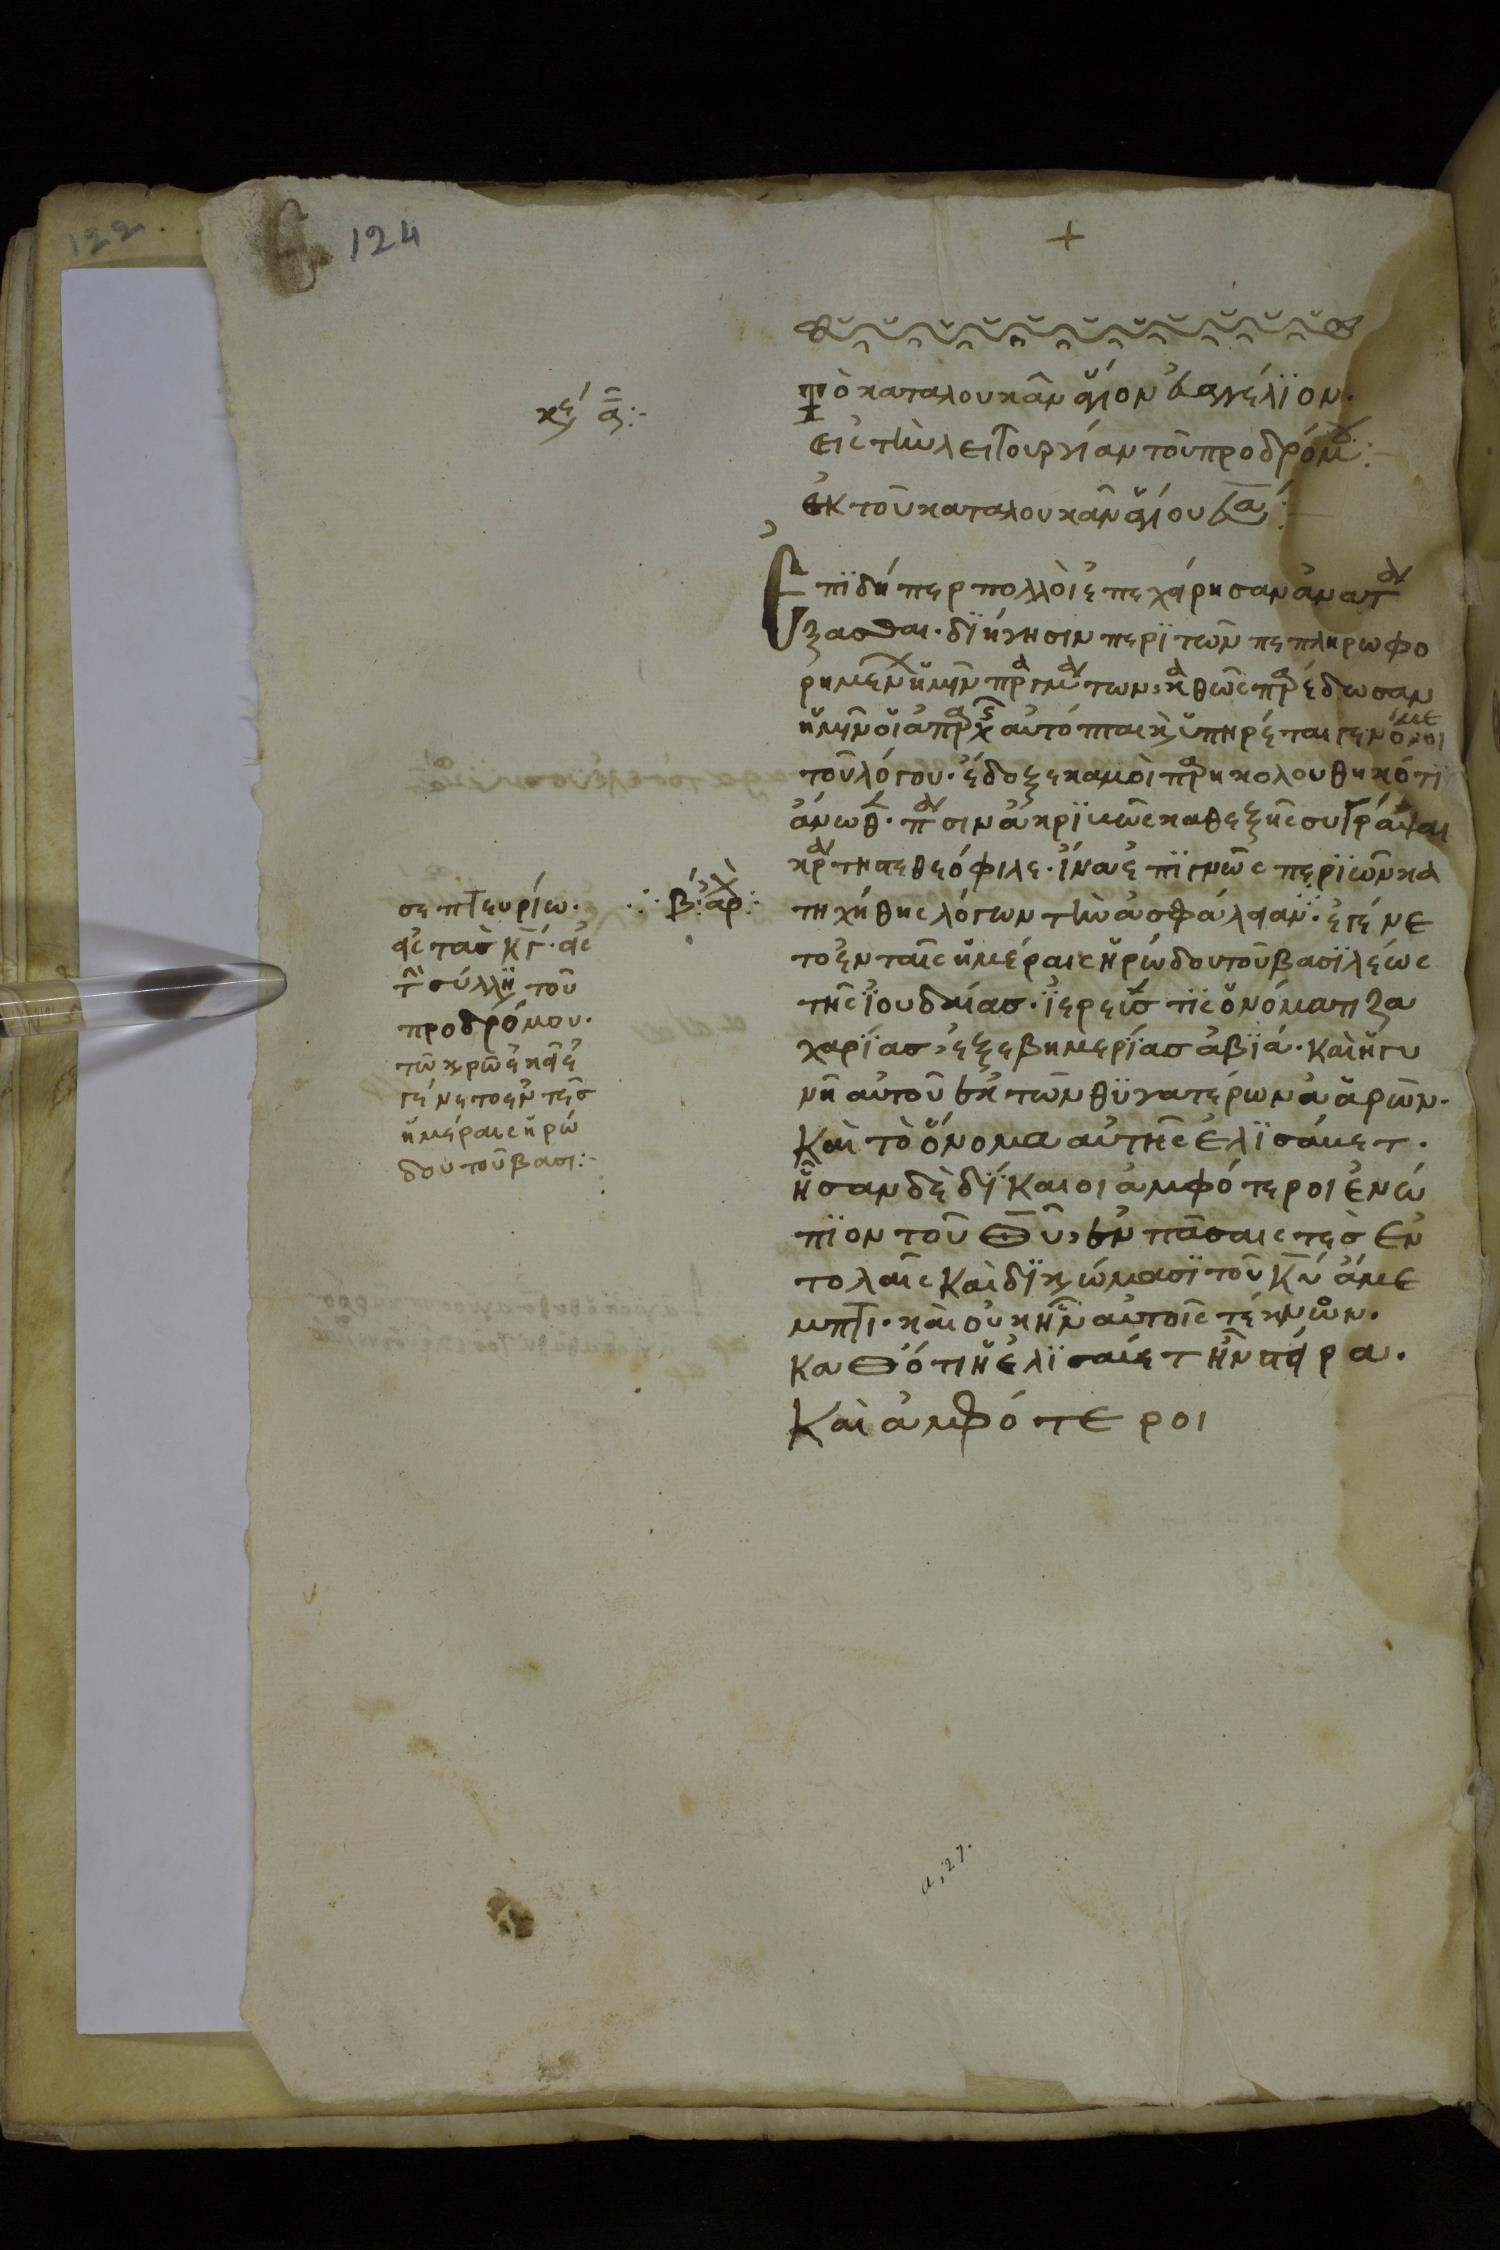 122
124
+
κε΄ α:-
Τὸ κατα λουκᾶν ἅγιον ἐυαγγέλϊον.
εις τὴν λειτουργίαν τοῦ προδρόμου:
ἐκ τοῦ κατα λουκᾶν ἁγίου ευα:
Επϊδήπερ πολλὸι ἐπεχείρησαν ἀνατα
ξασθαι. δϊήγησιν περϊ τῶν πεπληρωφο
ρημένων ἡμῖν πραγμάτων, καθὼς παρέδωσαν
ἡμῖν οἱ ἀπαρχῆς αὐτόπται κ ὑπηρέται γενόμενοι
τοῦ λόγου. ἔδοξε καμοὶ παρηκολουθηκότϊ
ἄνωθεν. πασιν ἀκρϊβῶς καθεξῆς συγράψαι
κρατηστε θεόφιλε. ἵνα ἐπϊγνῶς περϊ ὧν κα
τηχήθης λόγων τὴν ἀσφάλειαν. ἐγένε
το ἐν ταῖς ἡμέραις ἡρώδου τοῦ βασϊλέως
τῆς ϊουδαίας. ϊερεύς τϊς ὀνόματι ζα
χαρϊας, ἐξ εβημερϊας ἀβϊά. καὶ ἡ γυ
νῆ αὐτοῦ ἐκ τῶν θϋγατέρων ἀαρῶν.
Καὶ τὸ ὄνομα αὐτῆς ἐλϊσάβετ.
ἦσαν δὲ δϊκαιοι ἀμφότεροι ἐνώ
πϊον τοῦ Θῦ, ἐν πᾶσαις τες ἐν
τολαῖς καὶ δϊκαιώμασϊ τοῦ Κύ ἄμε
μπτοι. καὶ οὐκ ἦν αὐτοῖς τέκνων.
Καθότι ἡ ἐλϊσάβετ ἦν στείρα.
Καὶ ἀμφότεροι
β: ἀρχ:
σεπτευρίω.
εἰς τασ κγ. εἰς
τ σύλλη τοῦ
προδρόμου.
τῶ κρῶ ἐκείνε ἐ
γένετο ἐν τες
ἡμέραις ἡρώ
δου τοῦ βασι:-
α, 27.